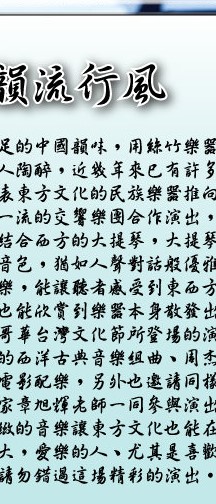 韻流行風
足的中國韻味，用絲竹樂器
人陶醉，近幾年來已有許多
表東方文化的民族樂器推向
一流的交響樂團合作演出，
結合西方的大提琴，大提琴
音色，猶如人聲對話般優雅
樂，能讓聽者感受到東西方
也能欣賞到樂器本身散發出
哥華台灣文化節所登場的演
的西洋古典音樂組曲、周杰
電影配樂，另外也邀請同樣
家章旭輝老師一同參與演出
緻的音樂讓東方文化也能在
大，愛樂的人、尤其是喜歡
請勿錯過這場精彩的演出。